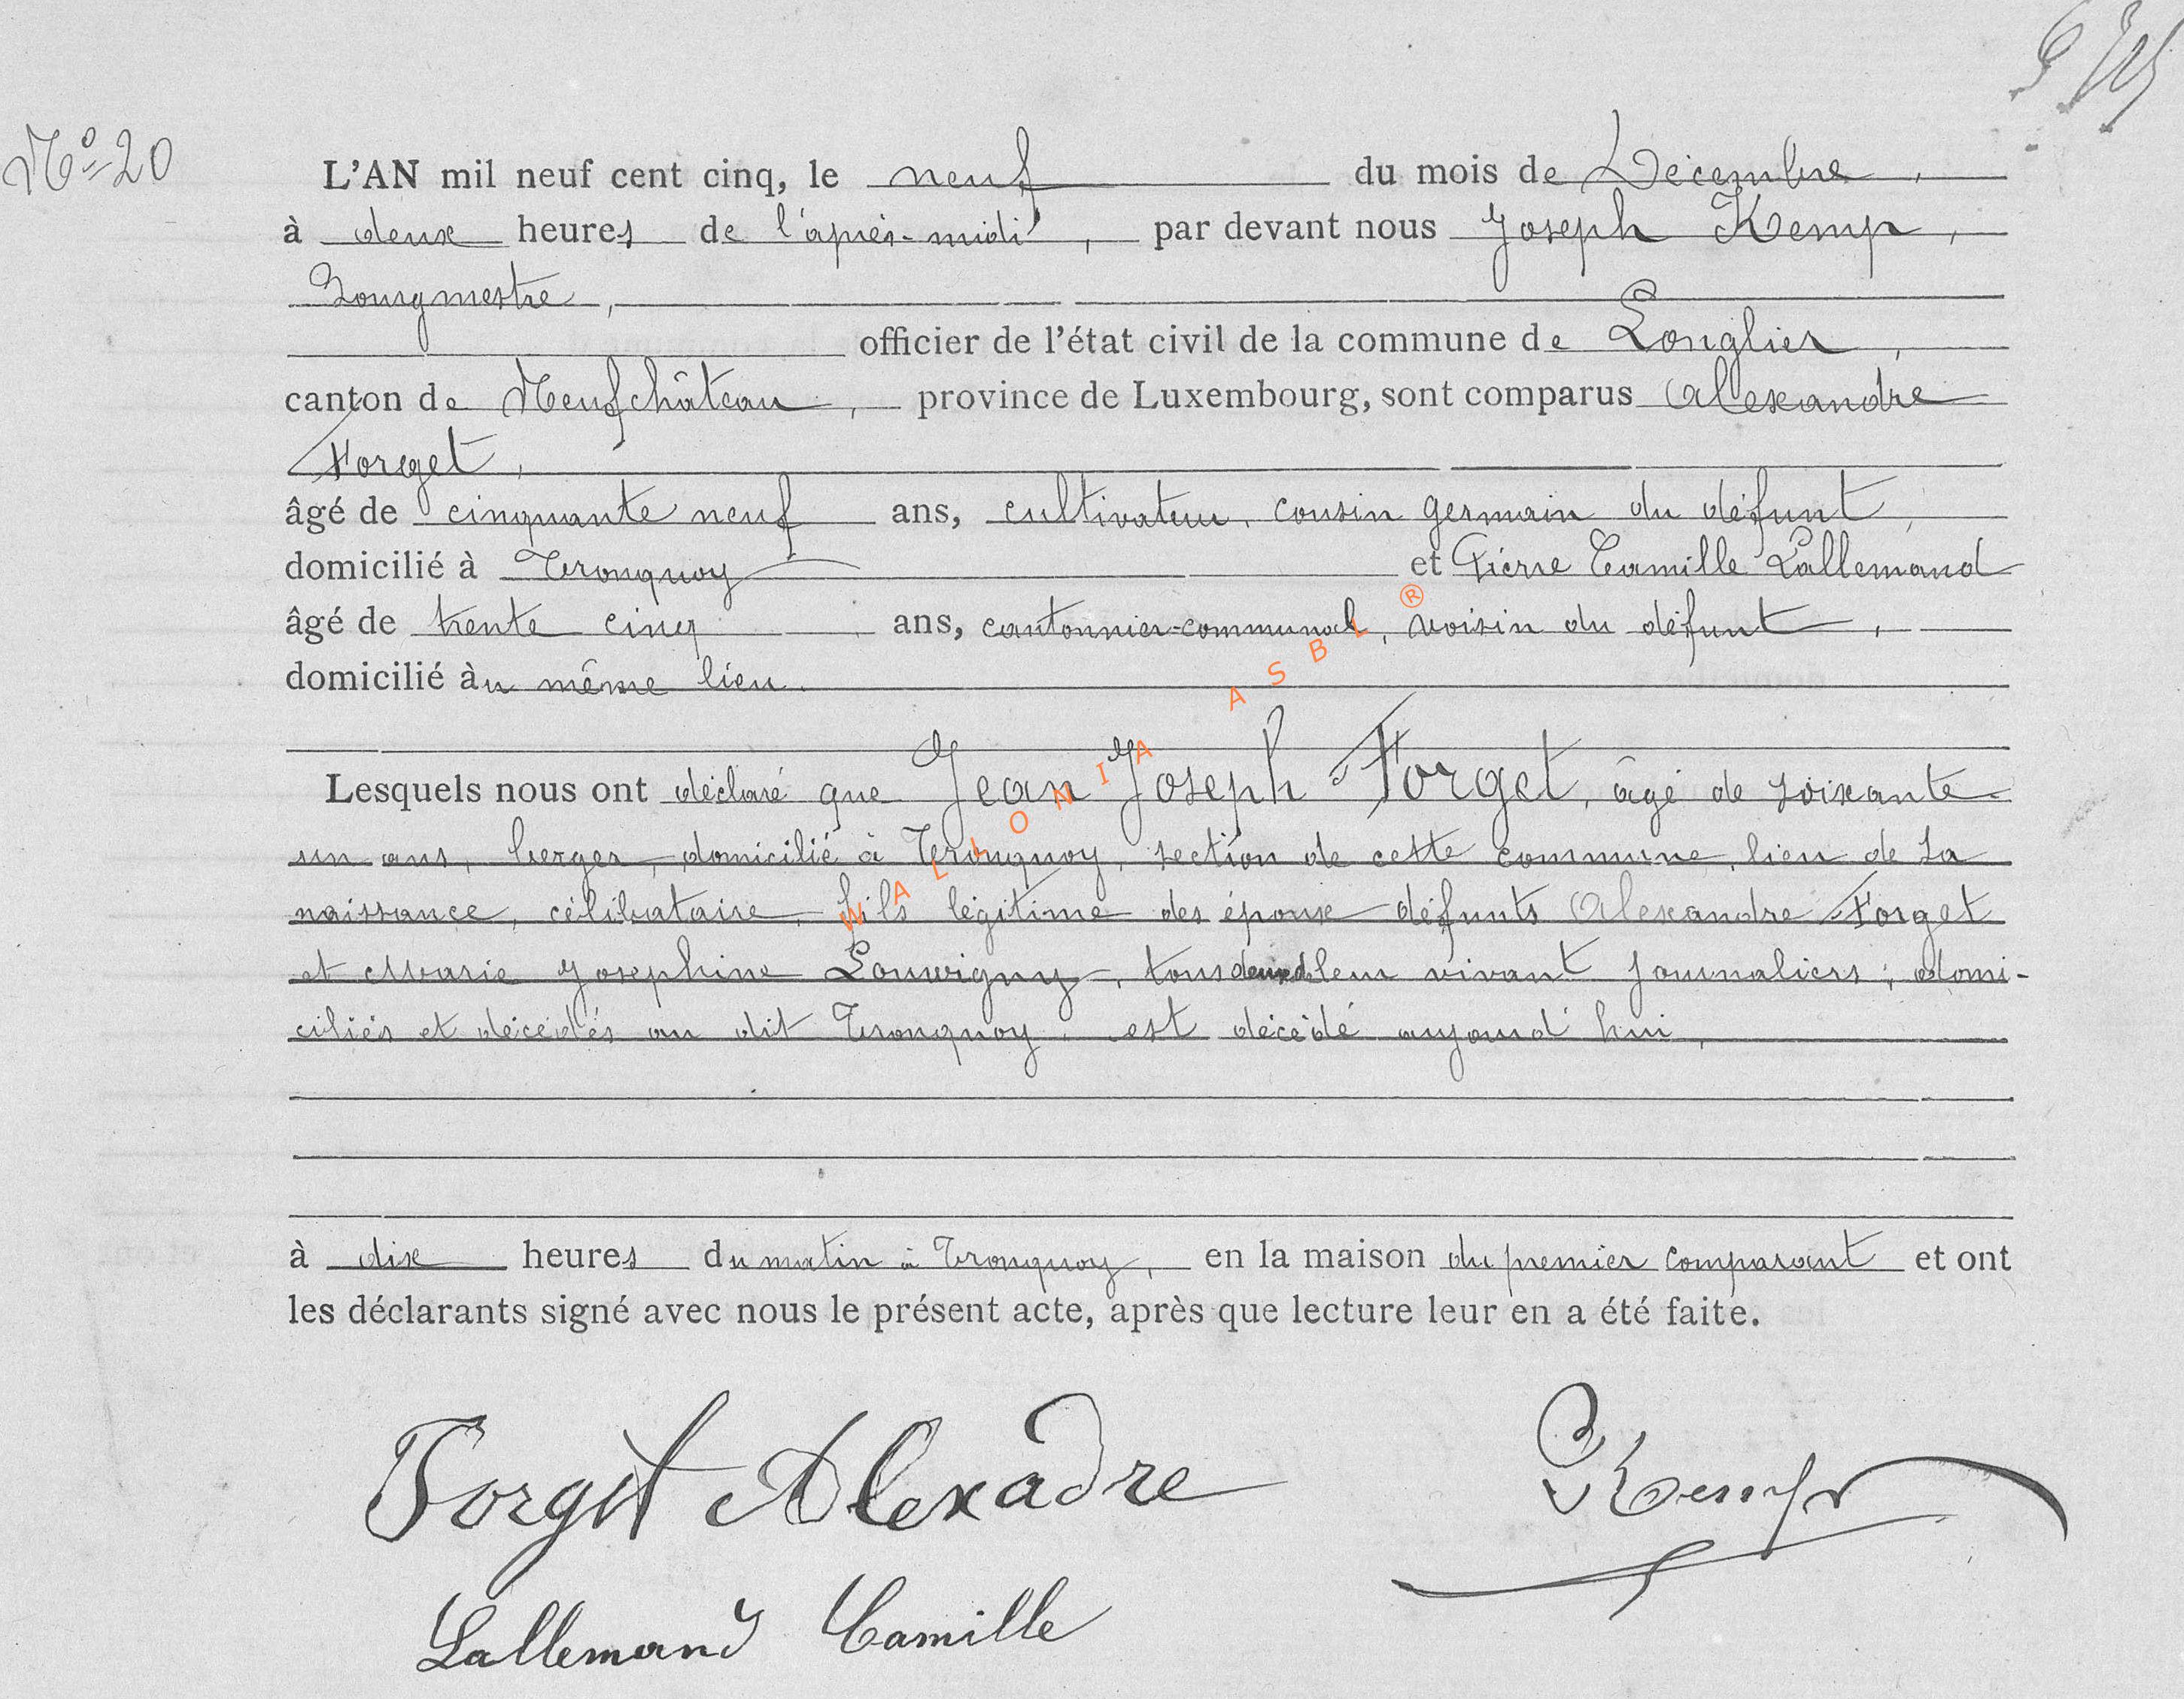 Nº 20
L'AN mil neuf cent cinq, le neuf du mois de Décembre,
à deux heures de l'après-midi, par devant nous Joseph Kemp,
Bourgmestre,
officier de l'état civil de la commune de Longlier,
canton de Neufchâteau, province de Luxembourg, sont comparus Alexandre
Forget,
âgé de cinquante neuf ans, cultivateur, cousin germain du défunt,
domicilié à Tronquoy et Pierre Camille Lallemand
âgé de trente cinq ans, cantonnier-communal, voisin du défunt,
domicilié au même lieu.
Lesquels nous ont déclaré que Jean Joseph Forget, âgé de soixante-
un ans, berger, domicilié à Tronquoy, section de cette commune, lieu de sa
naissance, célibataire, fils légitime des époux défunts Alexandre Forget
et Marie Josephine Louvigny, tous deux de leur vivant journaliers, domi-
ciliés et décédés au dit Tronquoy, est décédé aujourd'hui,
à dix heures du matin à Tronquoy, en la maison du premier comparant et ont
les déclarants signé avec nous le présent acte, après que lecture leur en a été faite.
Forget Alexadre
Kemp
Lallemand Camille
WALLONIA ASBL ®